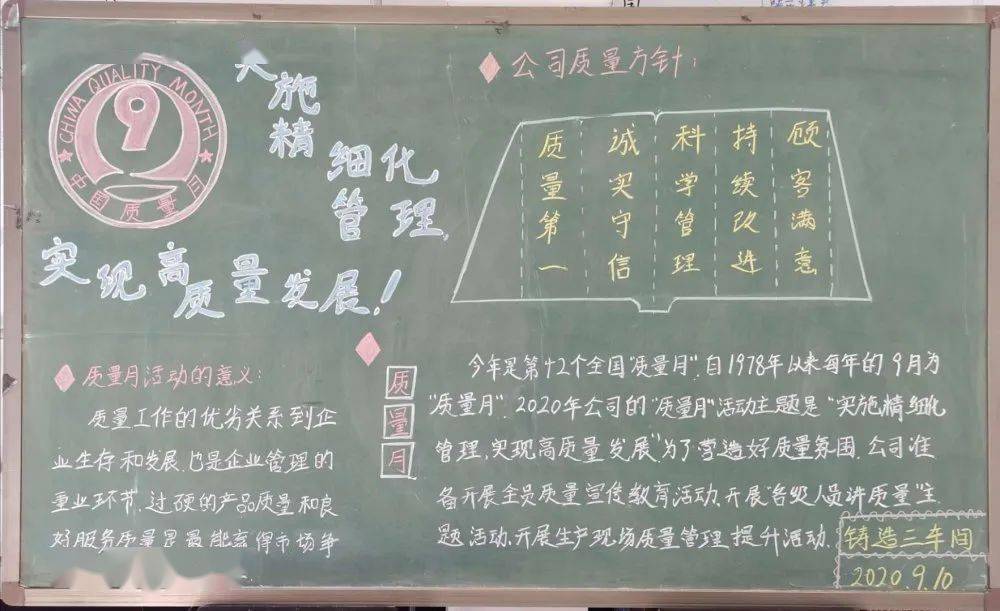 CHINA QUALITY MONTH
9
中国质量月
施精
细化
管理,
实现高质量发展!
公司质量方针:
质量第一
诚实守信
科学管理
持续改进
顾客满意
质量月活动的意义:
质量工作的优劣关系到企
业生存和发展,也是企业管理的
重业环节,过硬的产品质量和良
好服务质量是最能赢得市场争
质量月
今年是第42个全国"质量月",自1978年以来每年的9月为
"质量月".2020年公司的"质量月"活动主题是"实施精细化
管理,实现高质量发展"为了营造好质量氛围,公司准
备开展全员质量宣传教育活动、开展"各级人员讲质量"主
题活动、开展生产现场质量管理提升活动.
铸造三车间
2020.9.10